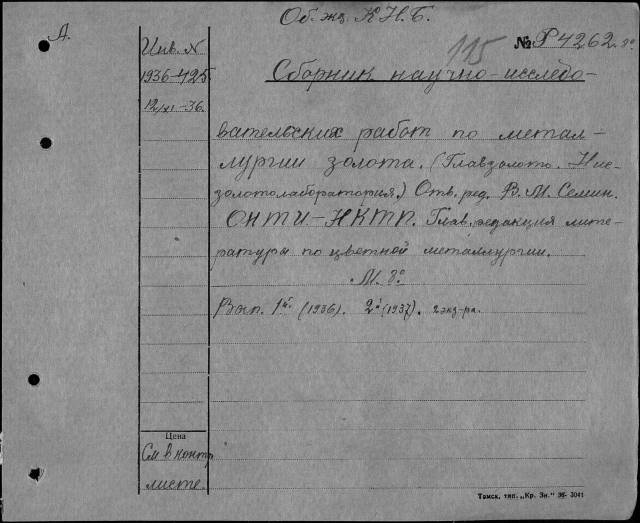 Об. жз. К Н. Б.
А.
115
№ Р4262. 8°
Инв. N
1936-425.
12/XI-36.
Сборник научно-исследо-
вательских работ по метал-
лургии золота. (Главзолото. Ние-
золотолаборатория.) Отв. ред. В. М. Семин.
ОНТИ-НКТП. Глав. редакция лите-
ратуры по цветной металлургии.
М. 8°
Вып. 1й (1936). 2й (1937). 2 экз-ра.
Цена
См в контр
листе.
Томск, тип. „Кр. Зн." 36- 3041